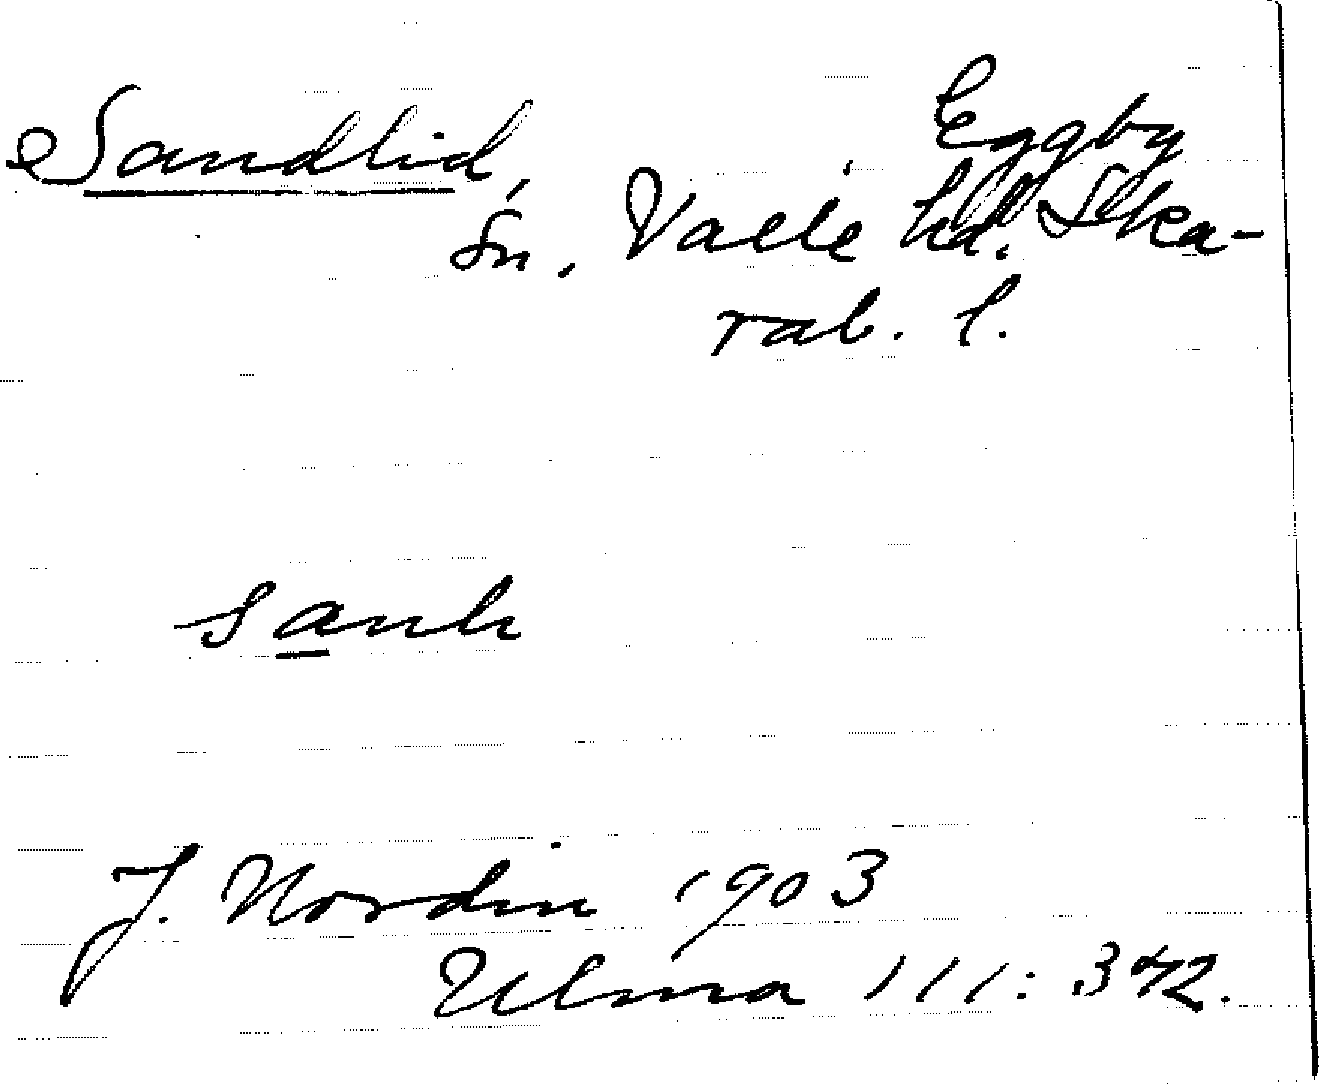 Sandlid, Eggby
sn. Valle hd. Ska-
rab. l.
sanli
J. Nordin 1903
Ulma 111:342.